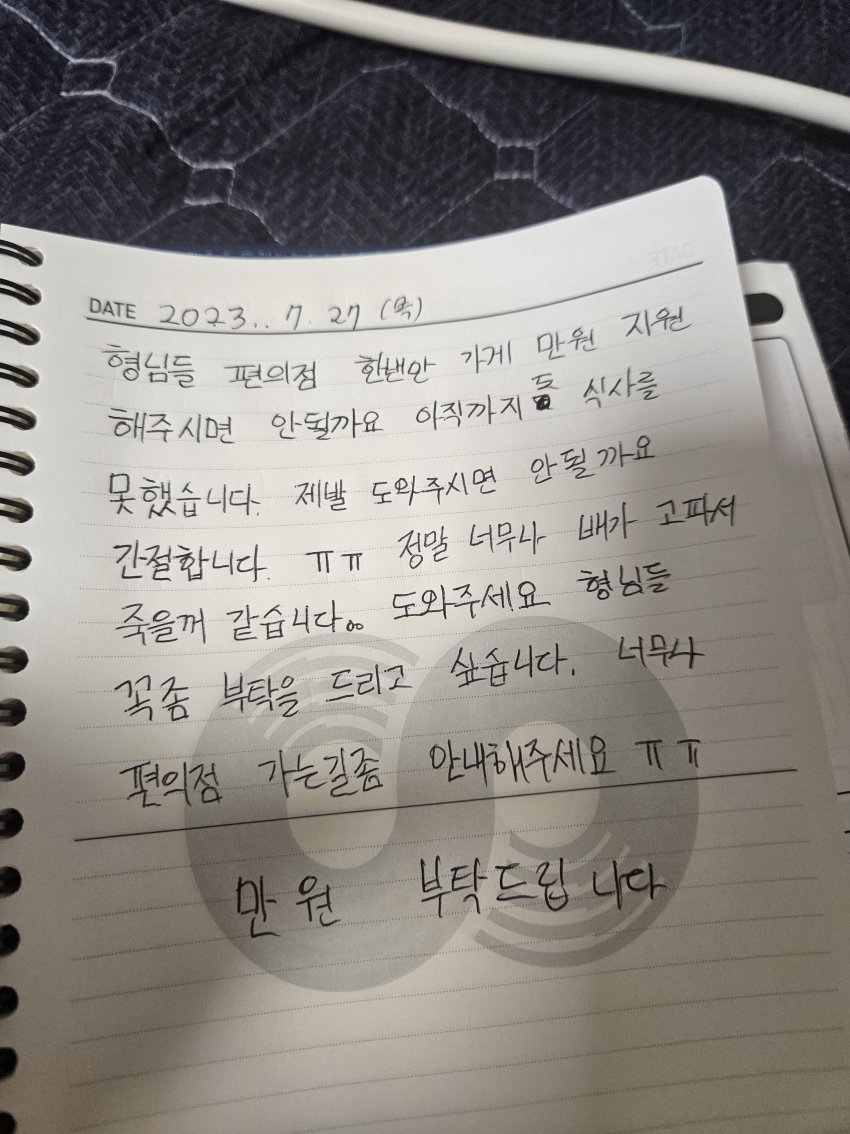 DATE 2023.. 7. 27 (목)
형님들 편의점 한밴만 가게 만원 지원
해주시면 안될까요 아직까지 식사를
못했습니다. 제발 도와주시면 안될까요
간절합니다. ㅠㅠ 정말 너무나 배가 고파서
죽을꺼 같습니다.. 도와주세요 형님들
꼭좀 부탁을 드리고 싶습니다. 너무나
편의점 가는길좀 안내해주세요 ㅠㅠ
만원 부탁드립니다